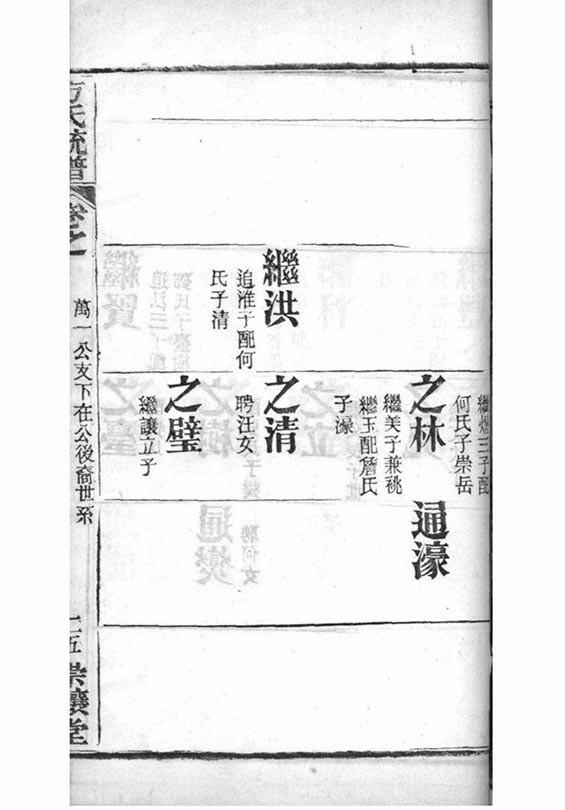 繼煜三子配
何氏子崇岳
之林
繼美子兼祧
繼玉配詹氏
子濠
通濠
繼洪
追淮子配何
氏子清
之清
聘汪女
之璧
繼讓立子
方氏統譜
卷之
萬一公支下在公後裔世系
崇讓堂